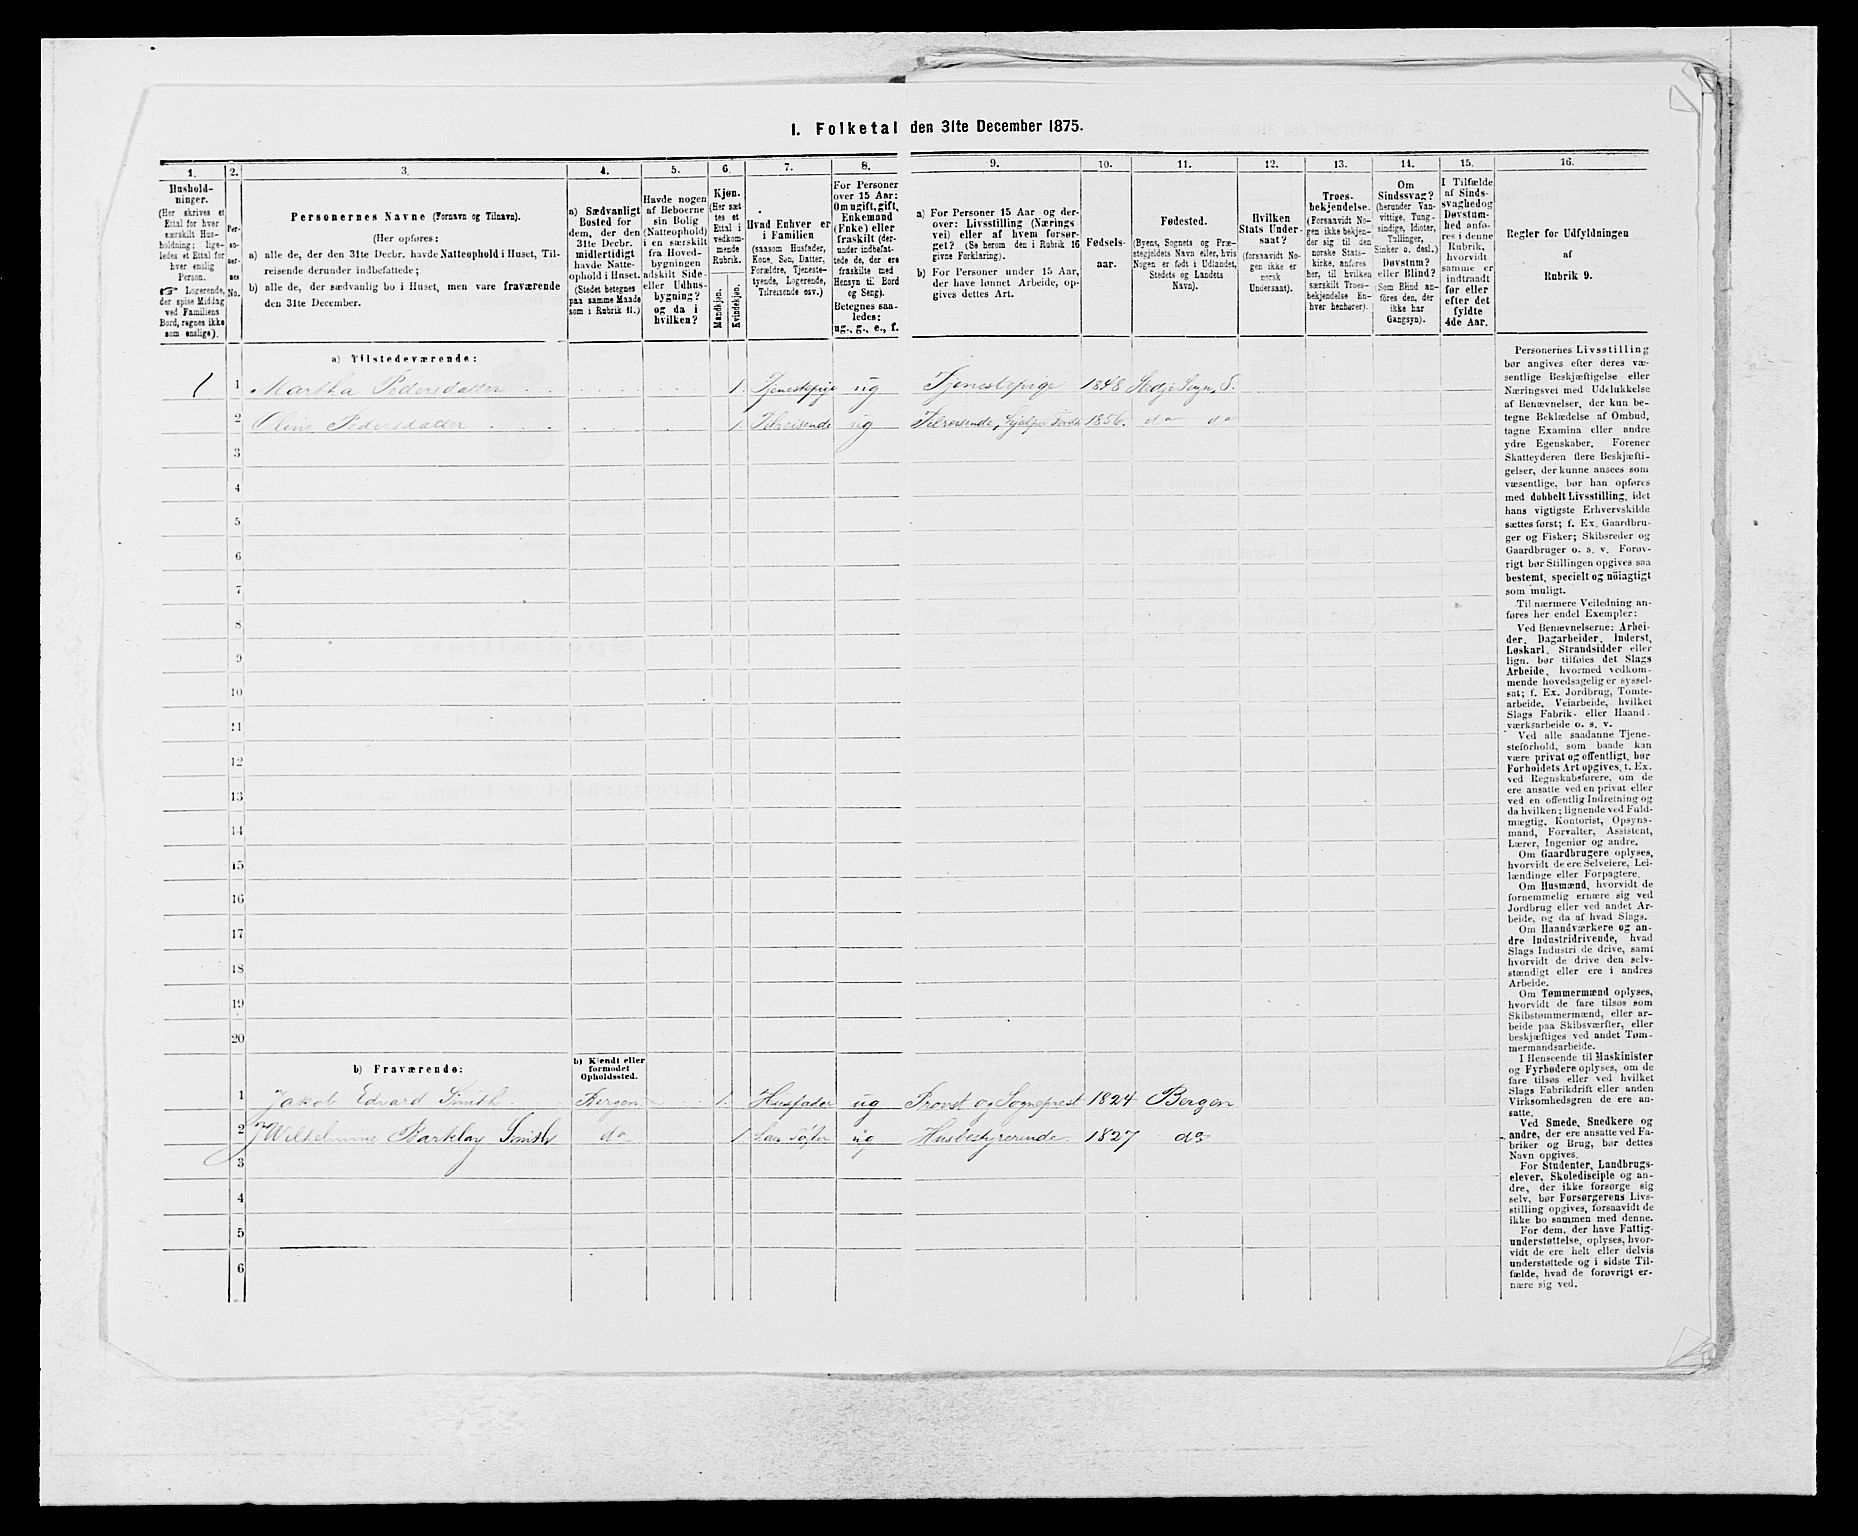 I. Folketal den 31te December 1875.
1. 2. 3. 4. 5. 6. 7. 8. 9. 10. 11. 12. 13. 14. 15. 16.
Hushold-
ninger.
(Her skrives et
Ettal for hver
særskilt Hus-
holdning; lige-
ledes et Ettal for
hver enslig
Person.
☞ Logerende,
der spise Middag
ved Familiens
Bord, regnes ikke
som enslige).
Per-
so-
ner-
nes
No.
Personernes Navne (Fornavn og Tilnavn).
(Her opføres:
a) alle de, der den 31te Decbr. havde Natteophold i Huset, Til-
reisende derunder indbefattede;
b) alle de, der sædvanlig bo i Huset, men vare fraværende
den 31te December.
a) Sædvanligt
Bosted for
dem, der den
31te Decbr.
midlertidigt
havde Natte-
ophold i Huset.
(Stedet betegnes
paa samme Maade
som i Rubrik 11.)
Havde nogen
af Beboerne
sin Bolig
(Natteophold)
i en særskilt
fra Hoved-
bygningen
adskilt Side-
eller Udhus-
bygning?
og da i
hvilken?
Kjøn.
(Her sæt-
tes et
Ettal i
vedkom-
mende
Rubrik.
Mandkjøn.
Kvindekjøn.
Hvad Enhver er
i Familien
(saasom Husfader,
Kone, Søn, Datter,
Forældre, Tjeneste-
tyende, Logerende,
Tilreisende osv.)
For Personer
over 15 Aar:
Om ugift, gift,
Enkemand
(Enke) eller
fraskilt (der-
under indbefat-
tede de, der ere
fraskilte med
Hensyn til Bord
og Seng).
Betegnes saa-
ledes:
ug., g., e., f.
a) For Personer 15 Aar og der-
over: Livsstilling (Nærings
vei) eller af hvem forsør-
get? (Se herom den i Rubrik 16
givne Forklaring).
b) For Personer under 15 Aar,
der have lønnet Arbeide, op-
gives dettes Art.
Fødsels-
aar.
Fødested.
(Byens, Sognets og Præ-
stegjeldets Navn eller, hvis
Nogen er født i Udlandet,
Stedets og Landets
Navn).
Hvilken
Stats Under-
saat?
(forsaavidt No-
gen ikke er
norsk
Undersaat).
Troes-
bekjendelse.
(Forsaavidt No-
gen ikke bekjen-
der sig til den
norske Stats-
kirke, anføres
her, til hvilken
særskilt Troes-
bekjendelse En-
hver henhører).
Om
Sindssvag?
(herunder Van-
vittige, Tung-
sindige, Idioter,
Tullinger,
Sinker o. desl.)
Døvstum?
eller Blind?
(Som Blind an-
føres den, der
ikke har
Gangsyn).
I Tilfælde
af Sinds-
svaghed og
Døvstum-
hed anfø-
res i denne
Rubrik,
hvorvidt
samme er
indtraadt
før eller
efter det
fyldte
4de Aar.
Regler for Udfyldningen
af
Rubrik 9.
a) Tilstedeværende:
1 1 Martha Pedersdatter 1. Tjenestepige ug Tjenestepige 1848 Sogn, S.
2 Oline Pedersdatter 1. Tilreisende ug Tilreisende, 1856. do do
3
4
5
6
7
8
9
10
11
12
13
14
15
16
17
18
19
20
b) Fraværende:
b) Kjendt eller
formodet
Opholdssted.
1 Jakob Edvard Smith Bergen 1. Husfader ug Provst og Sogneprest 1824 Bergen
2 Wilhelmine Barklay Smith do 1. ug Husbestyrerinde. 1827 do
3
4
5
6
Personernes Livsstilling
bør angives efter deres væ-
sentlige Beskjæftigelse eller
Næringsvei med Udelukkelse
af Benævnelser, der kun be-
tegne Beklædelse af Ombud,
tagne Examina eller andre
ydre Egenskaber. Forener
Skatteyderen flere Beskjæfti-
gelser, der kunne ansees som
væsentlige, bør han opføres
med dobbelt Livsstilling, idet
hans vigtigste Erhvervskilde
sættes først; f. Ex. Gaardbru-
ger og Fisker; Skibsreder og
Gaardbruger o. s. v. Forøv-
rigt bør Stillingen opgives saa
bestemt, specielt og nöiagtigt
som muligt.
Til nærmere Veiledning an-
føres her endel Exempler:
Ved Benævnelserne: Arbei-
der, Dagarbeider, Inderst,
Løskarl, Strandsidder eller
lign. bør tilføies det Slags
Arbeide, hvormed vedkom-
mende hovedsagelig er syssel-
sat; f. Ex. Jordbrug, Tomte-
arbeide, Veiarbeide, hvilket
Slags Fabrik- eller Haand-
værksarbeide o. s. v.
Ved alle saadanne Tjene-
steforhold, som baade kan
være privat og offentligt, bør
Forholdets Art opgives, f. Ex.
ved Regnskabsførere, om de
ere ansatte ved en privat eller
ved en offentlig Indretning og
da hvilken; lignende ved Fuld-
mægtig, Kontorist, Opsyns-
mand, Forvalter, Assistent,
Lærer, Ingeniør og andre.
Om Gaardbrugere oplyses,
hvorvidt de ere Selveiere, Lei-
lændinge eller Forpagtere.
Om Husmænd, hvorvidt de
fornemmelig ernære sig ved
Jordbrug eller ved andet Ar-
beide, og da af hvad Slags.
Om Haandværkere og an-
dre Industridrivende, hvad
Slags Industri de drive, samt
hvorvidt de drive den selv-
stændigt eller ere i andres
Arbeide.
Om Tømmermænd oplyses,
hvorvidt de fare tilsøs som
Skibstømmermænd, eller ar-
beide paa Skibsværfter, eller
beskjæftiges ved andet Tøm-
mermandsarbeide.
I Henseende til Maskinister
og Fyrbødere oplyses, om de
fare tilsøs eller ved hvilket
Slags Fabrikdrift eller anden
Virksomhedsgren de ere an-
satte.
Ved Smede, Snedkere og
andre, der ere ansatte ved Fa-
briker og Brug, bør dettes
Navn opgives.
For Studenter, Landbrugs-
elever, Skoledisciple og an-
dre, der ikke forsørge sig
selv, bør Forsørgerens Livs-
stilling opgives, forsaavidt de
ikke bo sammen med denne.
For dem, der have Fattig-
understøttelse, oplyses, hvor-
vidt de ere helt eller delvis
understøttede og i sidste Til-
fælde, hvad de forøvrigt er-
nære sig ved.